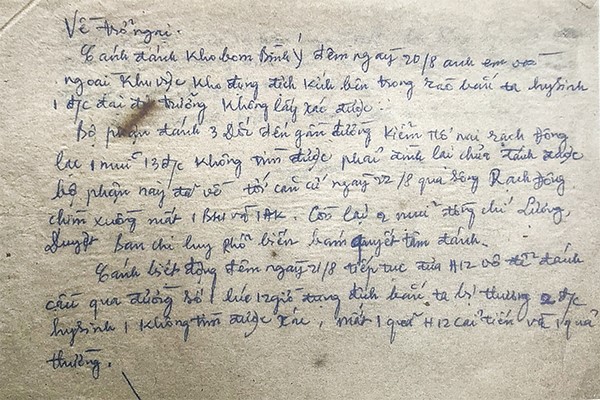 Về trở ngại.
Cánh đánh Kho bom Bình Ý đêm ngày 20/8 anh em vào
ngoài Khu vực Kho đụng địch Kích bên trong rào bắn ta hy sinh
1 đ/c đại đội trưởng Không lấy xác được.
Bộ phận đánh 3 Dốc đến gần đường Kiểm nai rạch đông
lạc 1 mũi 13 đ/c Không tìm được phải đình lại chưa đánh được
bộ phận này đã về tới căn cứ ngày 22/8 qua Sông Rạch Đông
chìm xuồng mất 1 và 1AK. Còn lại 2 mũi đồng chí Lương,
Duyệt Ban chỉ huy phổ biến bám quyết tâm đánh.
Cánh biệt động đêm ngày 21/8 tiếp tục đưa H12 vô để đánh
cầu qua đường số 1 lúc 12 giờ đụng địch bắn ta bị thương 2 đ/c
hy sinh 1 Không tìm được xác, mất 1 quả H12 cải tiến và 1 quả
thường.